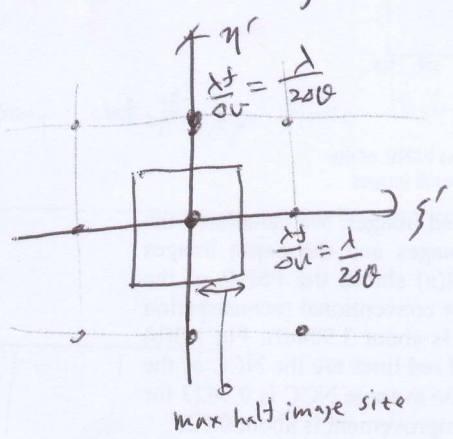 η'
λf/Δv = λ/2Δθ
ξ'
λf/Δu = λ/2Δθ
max half image size